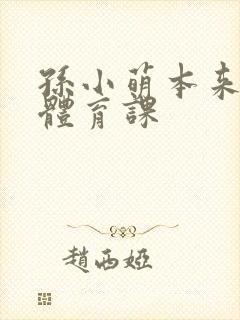 孫小萌本来
體育課
趙西婭